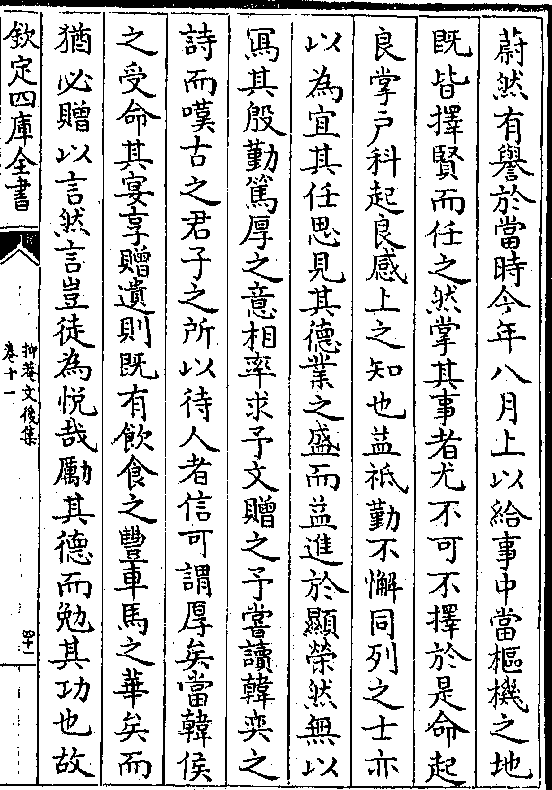 蔚然有譽於當時今年八月上以給事中當樞機之地
既皆擇賢而任之然掌其事者尤不可不擇於是命起
良掌戶科起良感上之知也益祗勤不懈同列之士亦
以為宜其任思見其德業之盛而益進於顯榮然無以
冩其殷勤篤厚之意相率求予文贈之予嘗讀韓奕之
詩而嘆古之君子之所以待人者信可謂厚矣當韓侯
之受命其宴享贈遺則既有飲食之豐車馬之華矣而
猶必贈以言然言豈徒為悅哉勵其德而勉其功也故
欽定四庫全書
抑菴文後集
卷十一
四十一